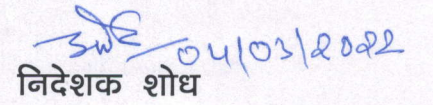 04/03/2022
निदेशक शोध